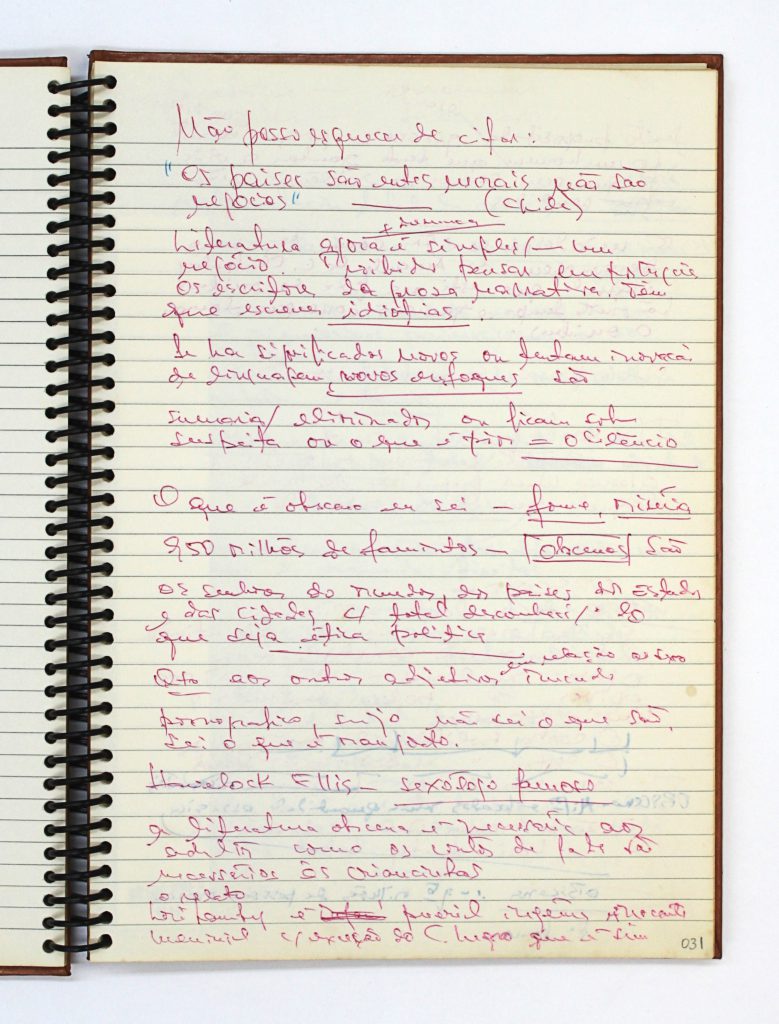 Não posso esquecer de citar:
"Os países são entes morais não são
negócios" (Chile)
Literatura agora é simples/ um
negócio. proibido pensar em português
Os escritores da prosa narrativa. Têm
que escrever idiotias
Se ha significados novos ou tentam inovação
de linguagem, novos enfoques são
sumaria/ eliminados ou ficam sob
suspeita ou o que é pior = o silêncio
O que é obsceno eu sei – fome, miséria
950 milhões de famintos – obscenos são
os senhores do mundo, dos países dos Estados
e das cidades c/ total desconheci/º do
que seja ética política
em relação ao sexo
Qto aos outros adjetivos imundo
pornografico, sujo não sei o que são.
Sei o que é
Havelock Ellis – sexólogo famoso
a literatura obscena é necessária aos
adultos como os contos de fada são
necessários às criancinhas
o relato
Lori Lamby é pueril ingênuo
c/ exceção do C. Negro que é sim
031